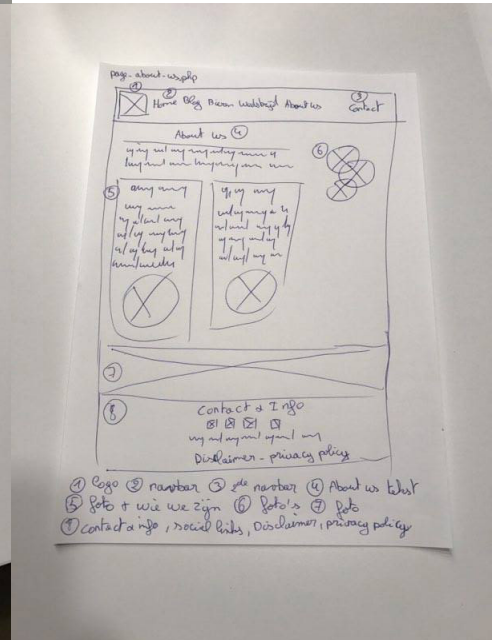 page-about-us.php
① ② ③
Home Blog Buren Wedstrijd About us Contact
About us ④
⑥
⑤
⑦
⑧ Contact & Info
Disclaimer - privacy policy
① logo ② navbar ③ 2de navbar ④ About us tekst
⑤ foto + wie we zijn ⑥ foto's ⑦ foto
contact & info, social links, Disclaimer, privacy policy